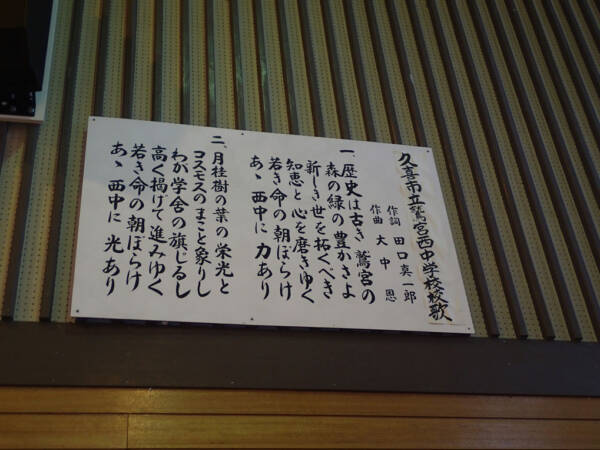 久喜市立鷲宮西中学校校歌
作詞 田口真一郎
作曲 大中恩
一、歴史は古き 鷲宮の
森の緑の豊かさよ
新しき世を拓くべき
知恵と心を磨きゆく
若き命の朝ぼらけ
あゝ西中に 力あり
二、月桂樹の葉の栄光と
コスモスのまこと象りし
わが学舎の旗じるし
高く掲げて進みゆく
若き命の朝ぼらけ
あゝ西中に 光あり